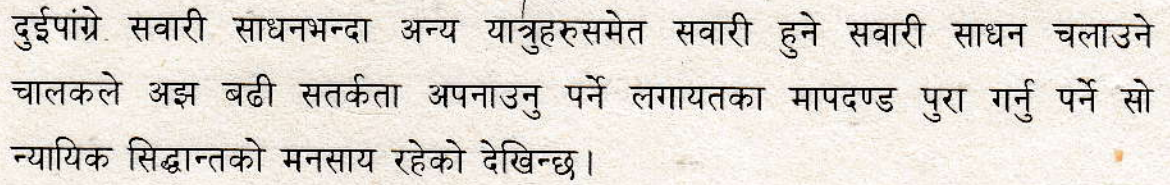 दुईपांग्रे सवारी साधनभन्दा अन्य यात्रुहरुसमेत सवारी हुने सवारी साधन चलाउने
चालकले अझ बढी सतर्कता अपनाउनु पर्ने लगायतका मापदण्ड पुरा गर्नु पर्ने सो
न्यायिक सिद्धान्तको मनसाय रहेको देखिन्छ।